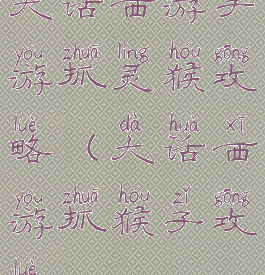 大话西游手
yóu zhuā líng hóu gōng
游抓灵猴攻
lüè dà huà xī
略（大话西
yóu zhuā hóu zǐ gōng
游抓猴子攻
lüè